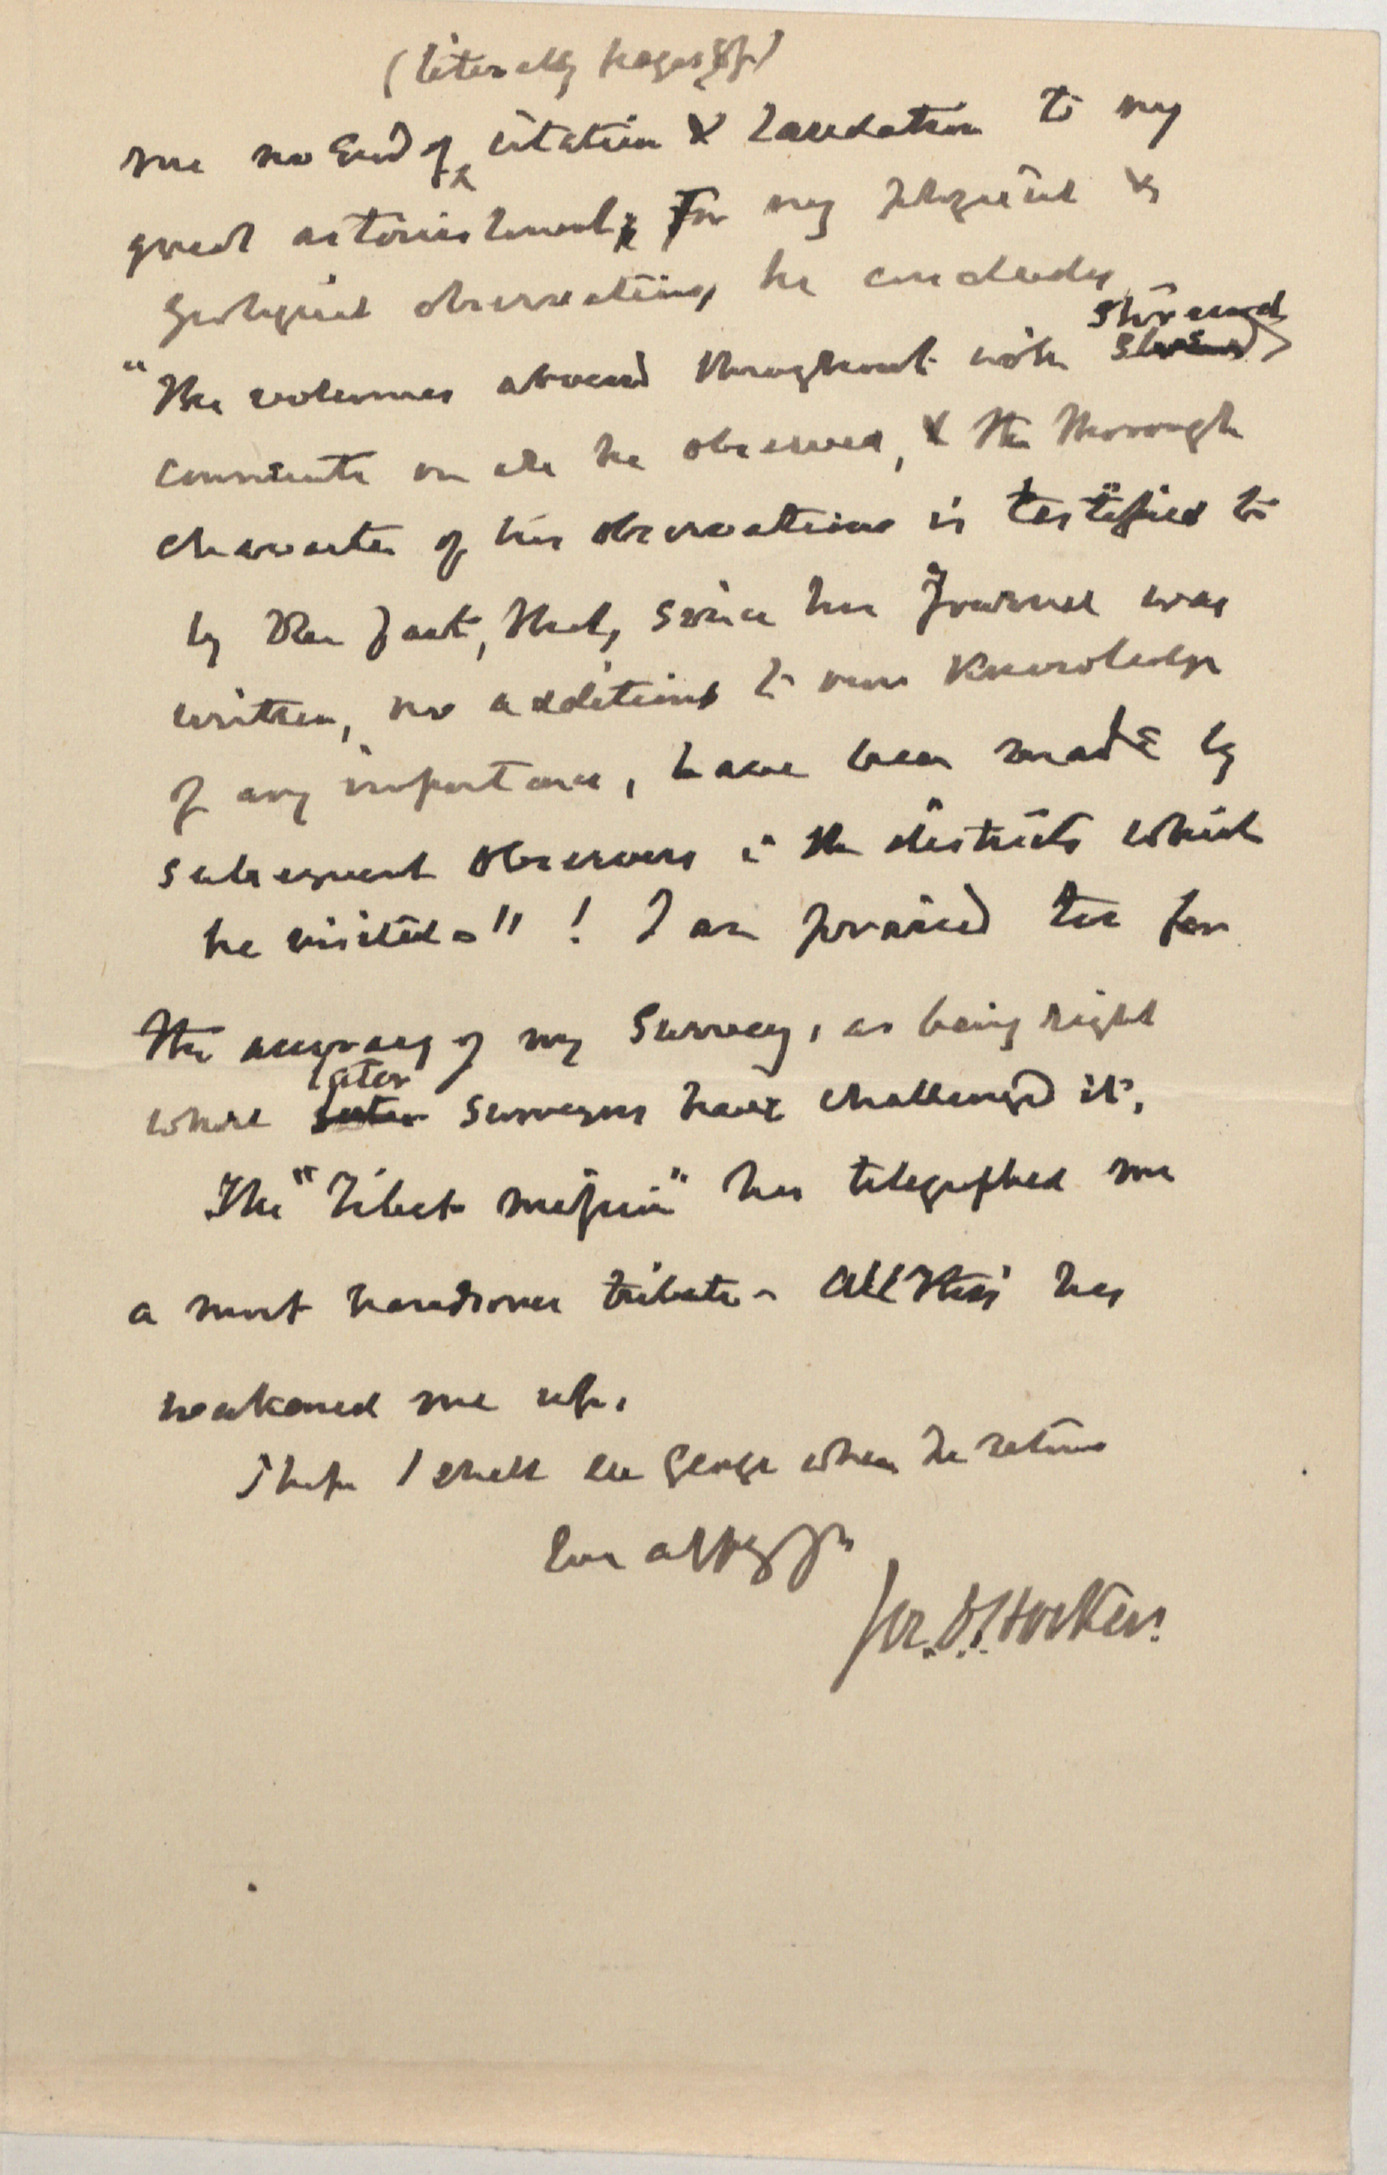 (literally pages of)
me no end of citation & laudation to my
great astonishment, for my physical &
Geological observations, he concludes
shrewd
"The volumes abound throughout with
comments on all he observed, & the thorough
character of his observations is testified to
by the fact, that, since his Journal was
written, no additions to our knowledge
of any importance, have been made by
subsequent observers in the districts which
he visited." ! I am praised too for
the accuracy of my Survey, as being right
later
where later surveyors have challenged it.
The "Tibet mission" has telegraphed me
a most handsome tribute - All this has
weakened me up.
I hope I shall see George when he returns
Ever affy yrs
Jos. D. Hooker.